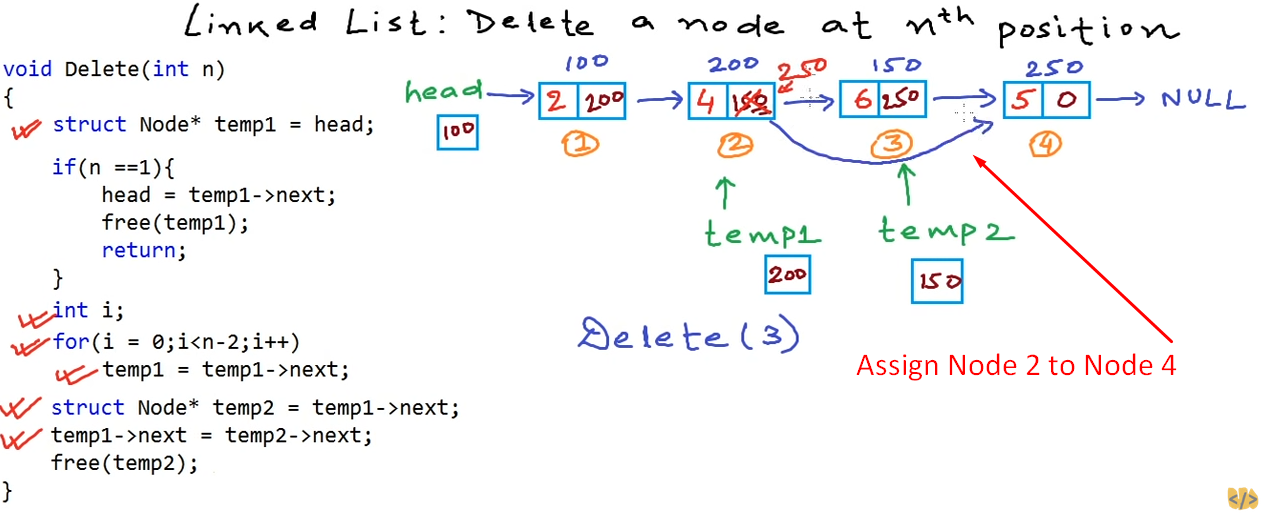 Linked List: Delete a node at nth position
void Delete(int n)
{
struct Node* temp1 = head;
if(n ==1){
head = temp1->next;
free(temp1);
return;
}
int i;
for(i = 0;i<n-2;i++)
temp1 = temp1->next;
struct Node* temp2 = temp1->next;
temp1->next = temp2->next;
free(temp2);
}
100 200 250 150 250
head 2 200 4 150 6 250 5 0 NULL
100
1 2 3 4
temp1 temp2
200 150
Delete(3)
Assign Node 2 to Node 4
</>